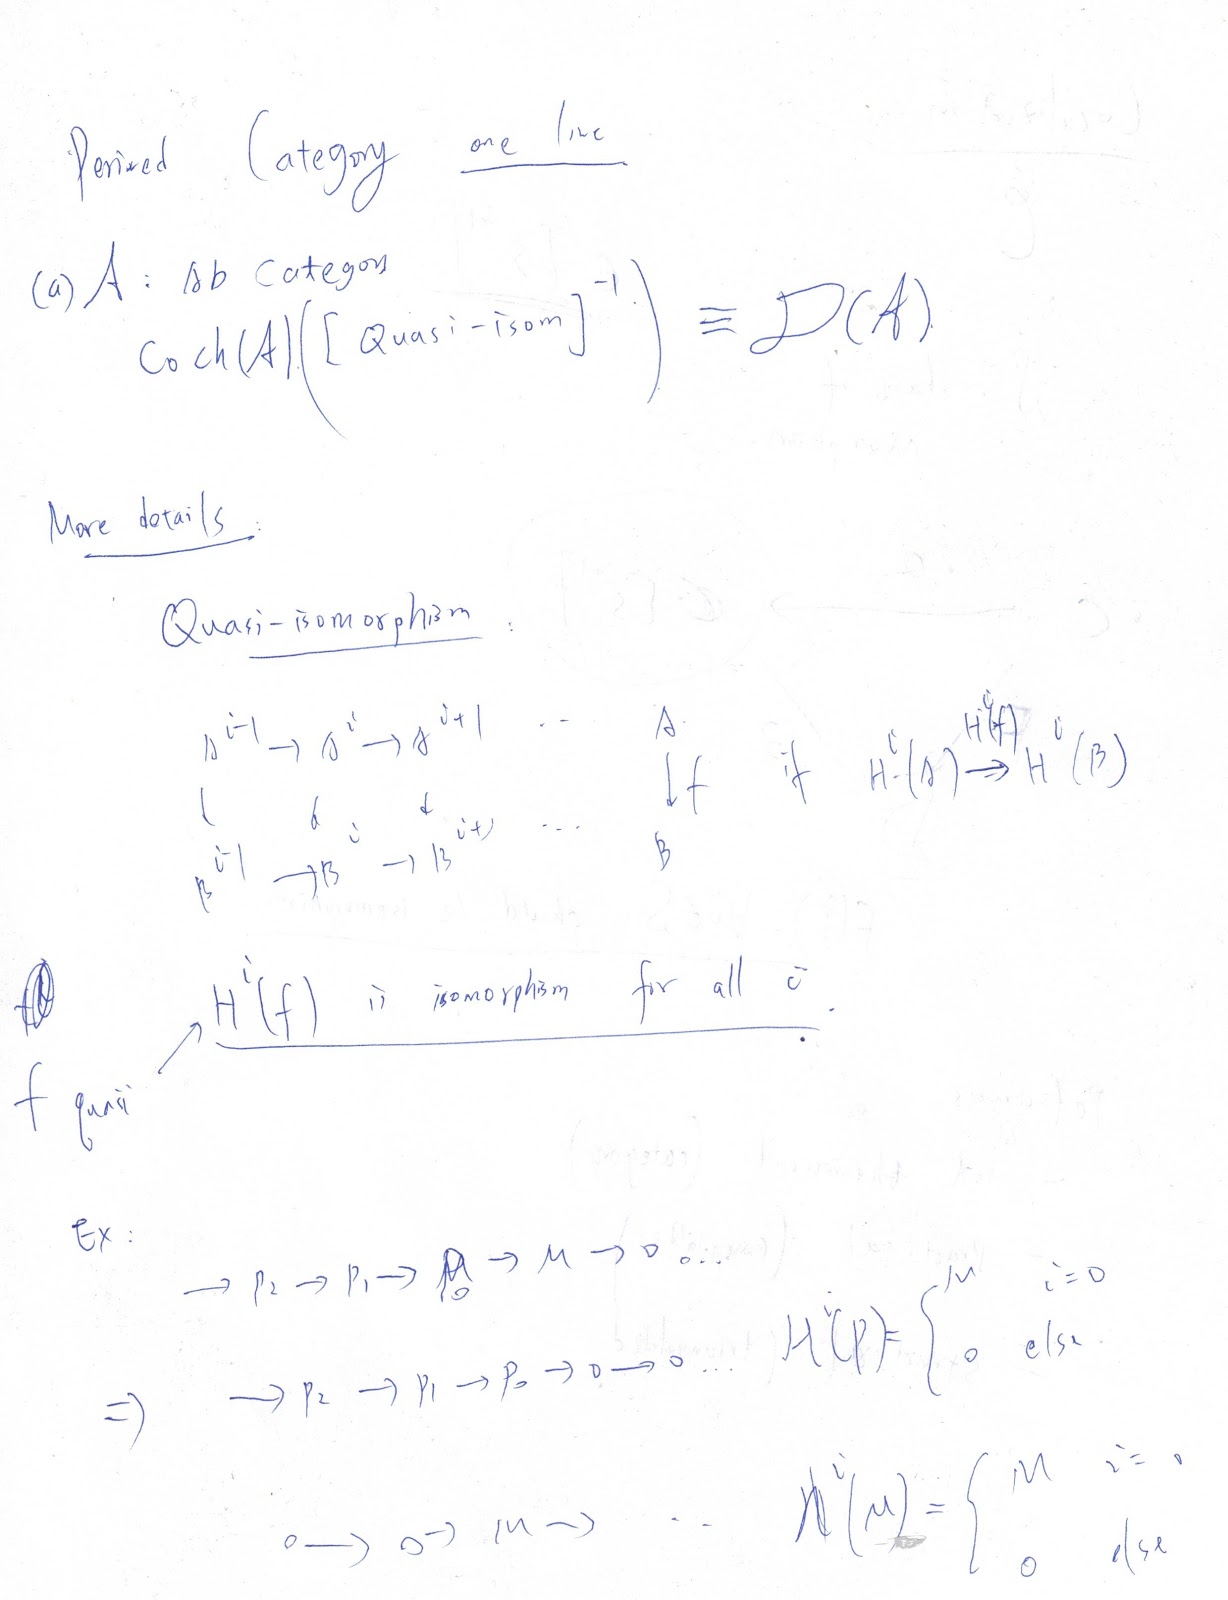 Derived Category one line
(a) A : Ab Category
Coch(A)([Quasi-isom]^{-1}) ≡ D(A).
More details:
Quasi-isomorphism :
A^{i-1} → A^i → A^{i+1} ... A
↓ ↓ ↓ ↓ f if H^i(A) \xrightarrow{H^i(f)} H^i(B)
B^{i-1} → B^i → B^{i+1} ... B
H^i(f) is isomorphism for all i.
f quasi
Ex:
→ P_2 → P_1 → P_0 → M → 0 0...
⇒ → P_2 → P_1 → P_0 → 0 → 0 ... H^i(P) = { M i=0
0 else.
0 → 0 → M → ... H^i(M) = { M i=0
0 else